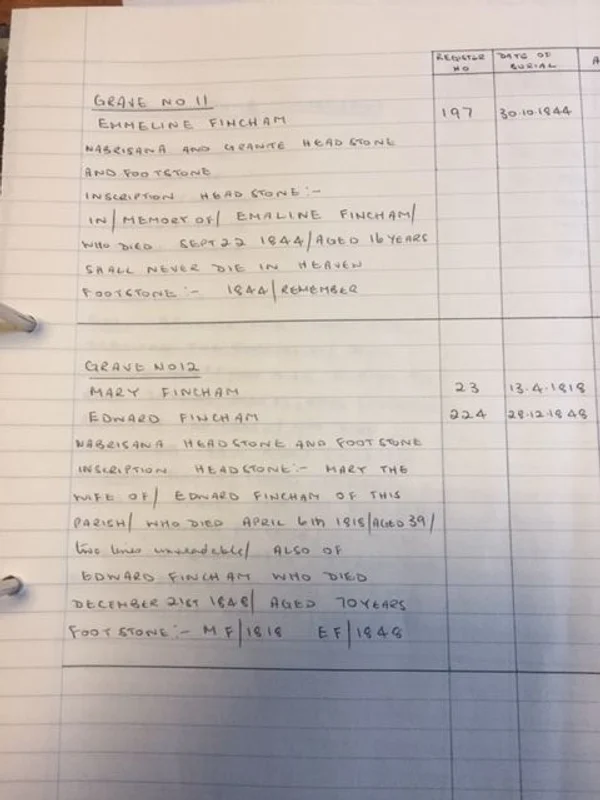 REGISTER NO
DATE OF BURIAL
A
GRAVE NO 11
EMMELINE FINCHAM 197 30.10.1844
NABRISANA AND GRANITE HEADSTONE
AND FOOTSTONE
INSCRIPTION HEADSTONE :-
IN/MEMORY OF/ EMALINE FINCHAM/
WHO DIED SEPT 22 1844/AGED 16 YEARS
SHALL NEVER DIE IN HEAVEN
FOOTSTONE :- 1844/REMEMBER
GRAVE NO 12
MARY FINCHAM 23 13.4.1818
EDWARD FINCHAM 224 28.12.1848
NABRISANA HEADSTONE AND FOOTSTONE
INSCRIPTION HEADSTONE :- MARY THE
WIFE OF/ EDWARD FINCHAM OF THIS
PARISH/ WHO DIED APRIL 6th 1818/AGED 39/
two lines unreadable/ ALSO OF
EDWARD FINCHAM WHO DIED
DECEMBER 21ST 1848/ AGED 70 YEARS
FOOTSTONE :- M F/1818 E F/1848